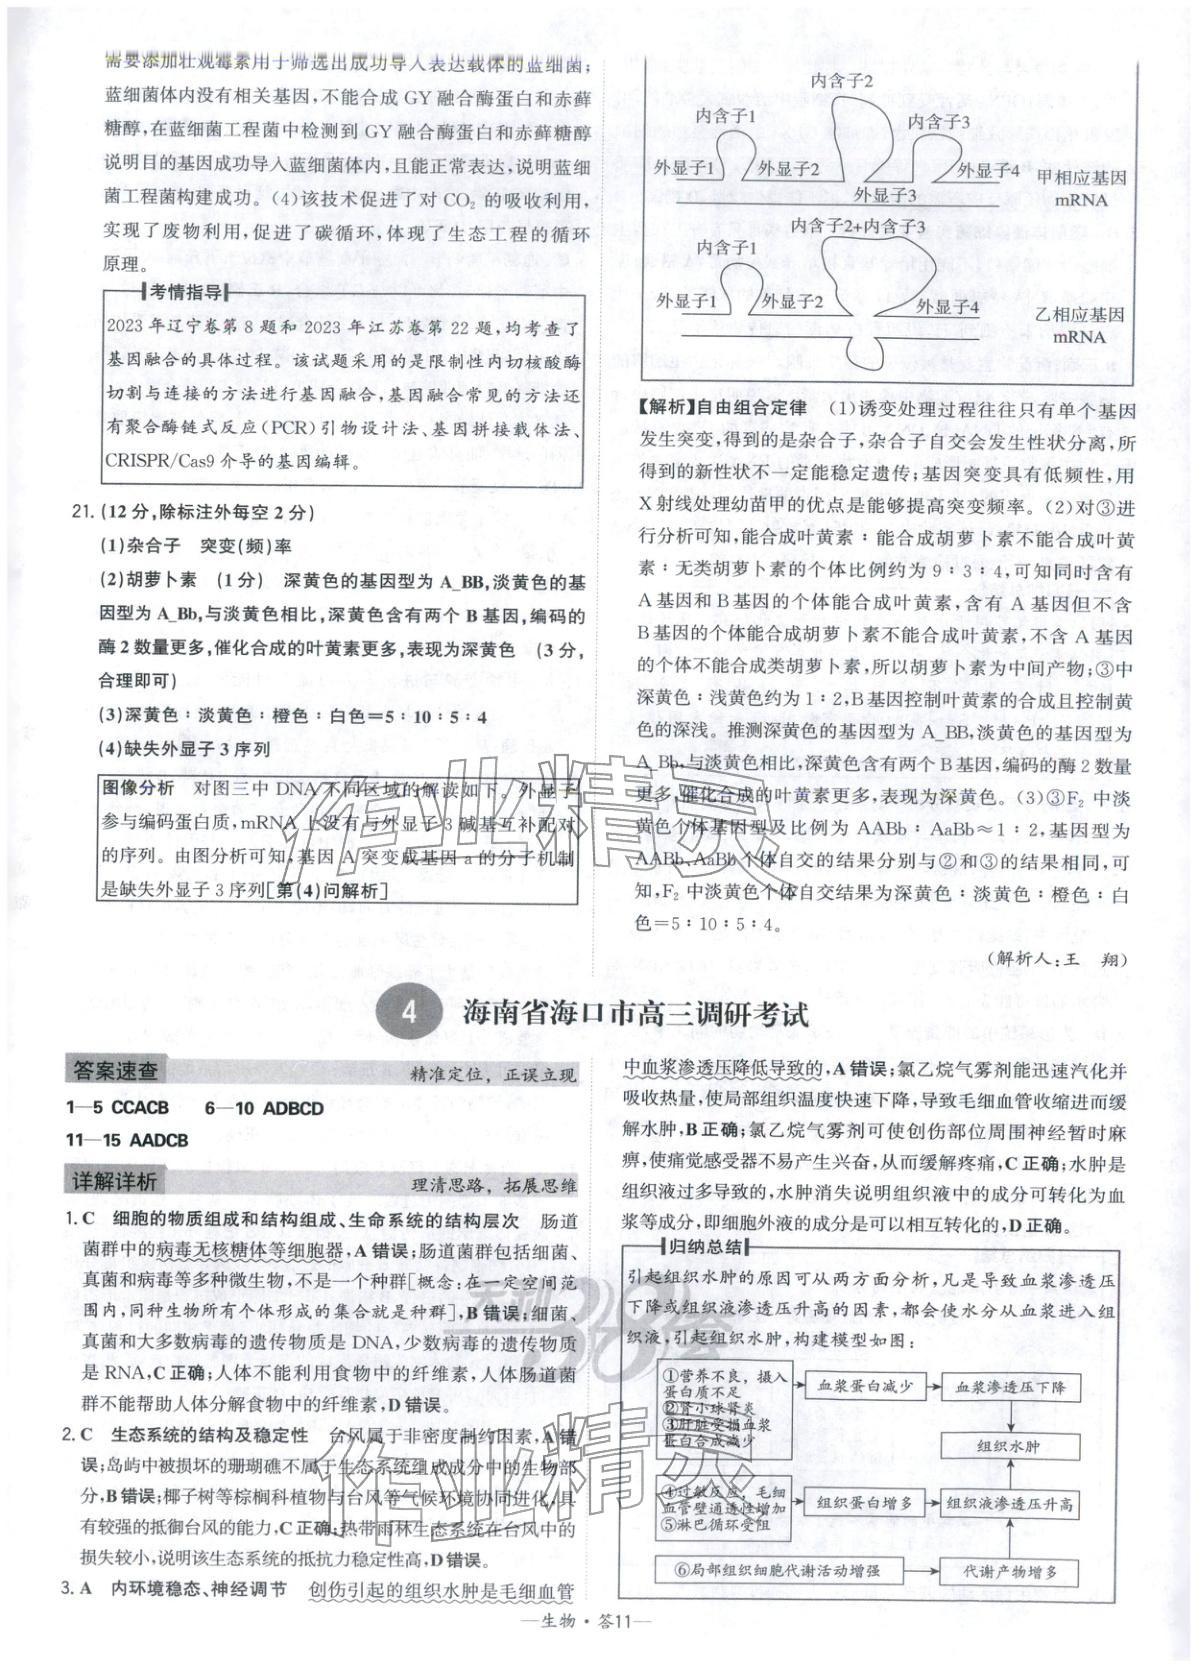 需要添加壮观霉素用于筛选出成功导入表达载体的蓝细菌；
蓝细菌体内没有相关基因,不能合成 GY 融合酶蛋白和赤藓
糖醇,在蓝细菌工程菌中检测到 GY 融合酶蛋白和赤藓糖醇
说明目的基因成功导入蓝细菌体内,且能正常表达,说明蓝细
菌工程菌构建成功。(4)该技术促进了对 CO₂ 的吸收利用,
实现了废物利用,促进了碳循环,体现了生态工程的循环
原理。
考情指导
2023 年辽宁卷第 8 题和 2023 年江苏卷第 22 题,均考查了
基因融合的具体过程。该试题采用的是限制性内切核酸酶
切割与连接的方法进行基因融合,基因融合常见的方法还
有聚合酶链式反应(PCR)引物设计法、基因拼接载体法、
CRISPR/Cas9 介导的基因编辑。
21. (12 分,除标注外每空 2 分)
(1)杂合子　突变(频)率
(2)胡萝卜素　(1 分)　深黄色的基因型为 A_BB,淡黄色的基
因型为 A_Bb,与淡黄色相比,深黄色含有两个 B 基因,编码的
酶 2 数量更多,催化合成的叶黄素更多,表现为深黄色　(3 分,
合理即可)
(3)深黄色∶淡黄色∶橙色∶白色＝5∶10∶5∶4
(4)缺失外显子 3 序列
图像分析　对图三中 DNA 不同区域的解读如下。外显子
参与编码蛋白质,mRNA 上没有与外显子 3 碱基互补配对
的序列。由图分析可知,基因 A 突变成基因 a 的分子机制
是缺失外显子 3 序列[第(4)问解析]
内含子2
内含子1
内含子3
外显子1
外显子2
外显子4
甲相应基因
外显子3
mRNA
内含子2+内含子3
内含子1
外显子1
外显子2
外显子4
乙相应基因
mRNA
【解析】自由组合定律　(1)诱变处理过程往往只有单个基因
发生突变,得到的是杂合子,杂合子自交会发生性状分离,所
得到的新性状不一定能稳定遗传;基因突变具有低频性,用
X 射线处理幼苗甲的优点是能够提高突变频率。(2)对③进
行分析可知,能合成叶黄素∶能合成胡萝卜素不能合成叶黄
素∶无类胡萝卜素的个体比例约为 9∶3∶4,可知同时含有
A 基因和 B 基因的个体能合成叶黄素,含有 A 基因但不含
B 基因的个体能合成胡萝卜素不能合成叶黄素,不含 A 基因
的个体不能合成类胡萝卜素,所以胡萝卜素为中间产物;③中
深黄色∶浅黄色约为 1∶2,B 基因控制叶黄素的合成且控制黄
色的深浅。推测深黄色的基因型为 A_BB,淡黄色的基因型为
A_Bb,与淡黄色相比,深黄色含有两个 B 基因,编码的酶 2 数量
更多,催化合成的叶黄素更多,表现为深黄色。(3)③F₂ 中淡
黄色个体基因型及比例为 AABb∶AaBb≈1∶2,基因型为
AABb、AaBb 个体自交的结果分别与②和③的结果相同,可
知,F₂ 中淡黄色个体自交结果为深黄色∶淡黄色∶橙色∶白
色＝5∶10∶5∶4。
(解析人:王　翔)
4　海南省海口市高三调研考试
答案速查
精准定位，正误立现
1—5 CCACB　6—10 ADBCD
11—15 AADCB
详解详析
理清思路，拓展思维
1. C　细胞的物质组成和结构组成、生命系统的结构层次　肠道
菌群中的病毒无核糖体等细胞器,A 错误;肠道菌群包括细菌、
真菌和病毒等多种微生物,不是一个种群[概念:在一定空间范
围内,同种生物所有个体形成的集合就是种群],B 错误;细菌、
真菌和大多数病毒的遗传物质是 DNA,少数病毒的遗传物质
是 RNA,C 正确;人体不能利用食物中的纤维素,人体肠道菌
群不能帮助人体分解食物中的纤维素,D 错误。
2. C　生态系统的结构及稳定性　台风属于非密度制约因素,A 错
误;岛屿中被损坏的珊瑚礁不属于生态系统组成成分中的生物部
分,B 错误;椰子树等棕榈科植物与台风等气候环境协同进化,具
有较强的抵御台风的能力,C 正确;热带雨林生态系统在台风中的
损失较小,说明该生态系统的抵抗力稳定性高,D 错误。
3. A　内环境稳态、神经调节　创伤引起的组织水肿是毛细血管
中血浆渗透压降低导致的,A 错误;氯乙烷气雾剂能迅速汽化并
吸收热量,使局部组织温度快速下降,导致毛细血管收缩进而缓
解水肿,B 正确;氯乙烷气雾剂可使创伤部位周围神经暂时麻
痹,使痛觉感受器不易产生兴奋,从而缓解疼痛,C 正确;水肿是
组织液过多导致的,水肿消失说明组织液中的成分可转化为血
浆等成分,即细胞外液的成分是可以相互转化的,D 正确。
归纳总结
引起组织水肿的原因可从两方面分析,凡是导致血浆渗透压
下降或组织液渗透压升高的因素,都会使水分从血浆进入组
织液,引起组织水肿,构建模型如图:
①营养不良，摄入
蛋白质不足
②肾小球肾炎
③肝脏受损血浆
蛋白合成减少
血浆蛋白减少
血浆渗透压下降
组织水肿
④过敏反应，毛细
血管壁通透性增加
⑤淋巴循环受阻
组织蛋白增多
组织液渗透压升高
⑥局部组织细胞代谢活动增强
代谢产物增多
作业精灵
天利38套
作业精灵
—生物·答11—